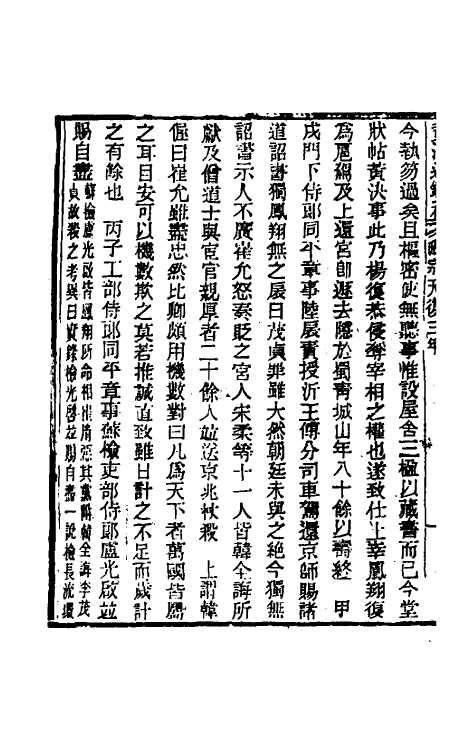 今執勿過矣且樞密使無聽事惟設屋舍三楹以藏書而已今堂
狀帖黃決事此乃楊復恭侵奪宰相之權也遂致仕上幸鳳翔復
爲扈駕及上還宮卽遯去隱於蜀靑城山年八十餘以壽終　甲
戌門下侍郎同平章事陸扆責授沂王傅分司車駕還京師賜諸
道詔書獨鳳翔無之扆曰茂貞罪雖大然朝廷未與之絕今獨無
詔書示人不廣崔允怒奏貶之宮人宋柔等十一人皆韓全誨所
獻及僧道士與宦官親厚者二十餘人並送京兆杖殺　上謂韓
偓曰崔允雖盡忠然比卿頗用機數對曰凡爲天下者萬國皆屬
之耳目安可以機數欺之莫若推誠直致雖日計之不足而歲計
之有餘也　丙子工部侍郎同平章事蘇檢吏部侍郎盧光啟並
賜自盡蘇檢盧光啟皆鳳翔所命相崔允惡其黨附韓全誨李茂
貞故殺之考異曰實錄檢光啓並賜自盡一說檢長流環